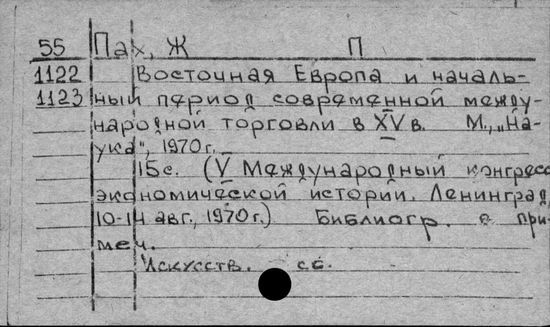 55 Пах, Ж П
1122 Восточная Европа и началь-
1123 ный период современной между-
народной торговли в XV в. М., „На-
ука", 1970г.
15с. (V Международный конгресс
экономической истории. Ленинград,
10-14 авг., 1970г.) Библиогр. в при-
меч.
Искусств. сб.